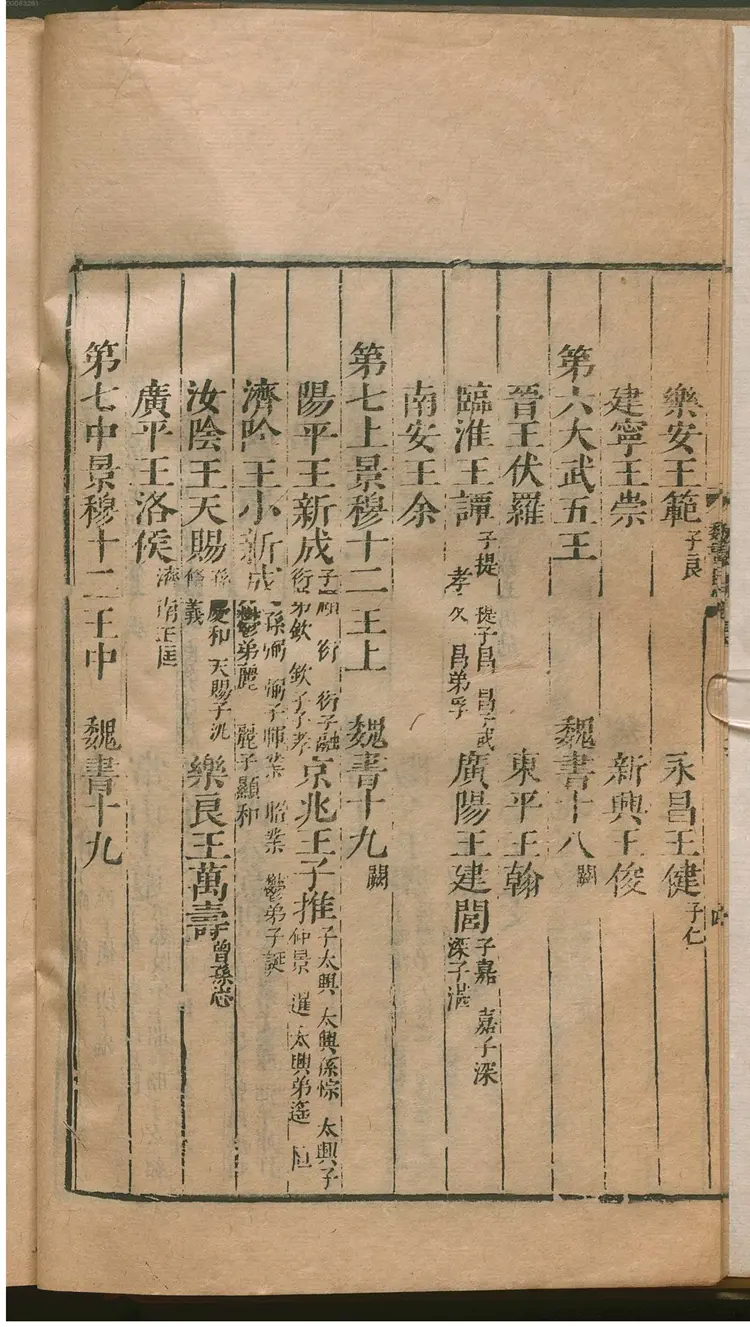 樂安王範子良 永昌王健子仁
建寧王崇 新興王俊
第六大武五王 魏書十八闕
晉王伏羅 東平王翰
臨淮王譚子提 提子昌 昌子彧 孝 昌弟孚 廣陽王建閭子嘉 嘉子深 深子湛
南安王余
第七上景穆十二王上 魏書十九闕
陽平王新成子頤 衍 衍子融 衍弟欽 欽子子孝 京兆王子推子太興 太興孫悰 太興子仲景 暹 太興弟遙
濟陰王小新成孫弼 弼子暉業 昭業 鬱弟子誕 鬱弟麗 麗子顯和
汝陰王天賜孫慶和 天賜子汎 脩義 樂良王萬壽曾孫忠
廣平王洛侯濟南王匡
第七中景穆十二王中 魏書十九